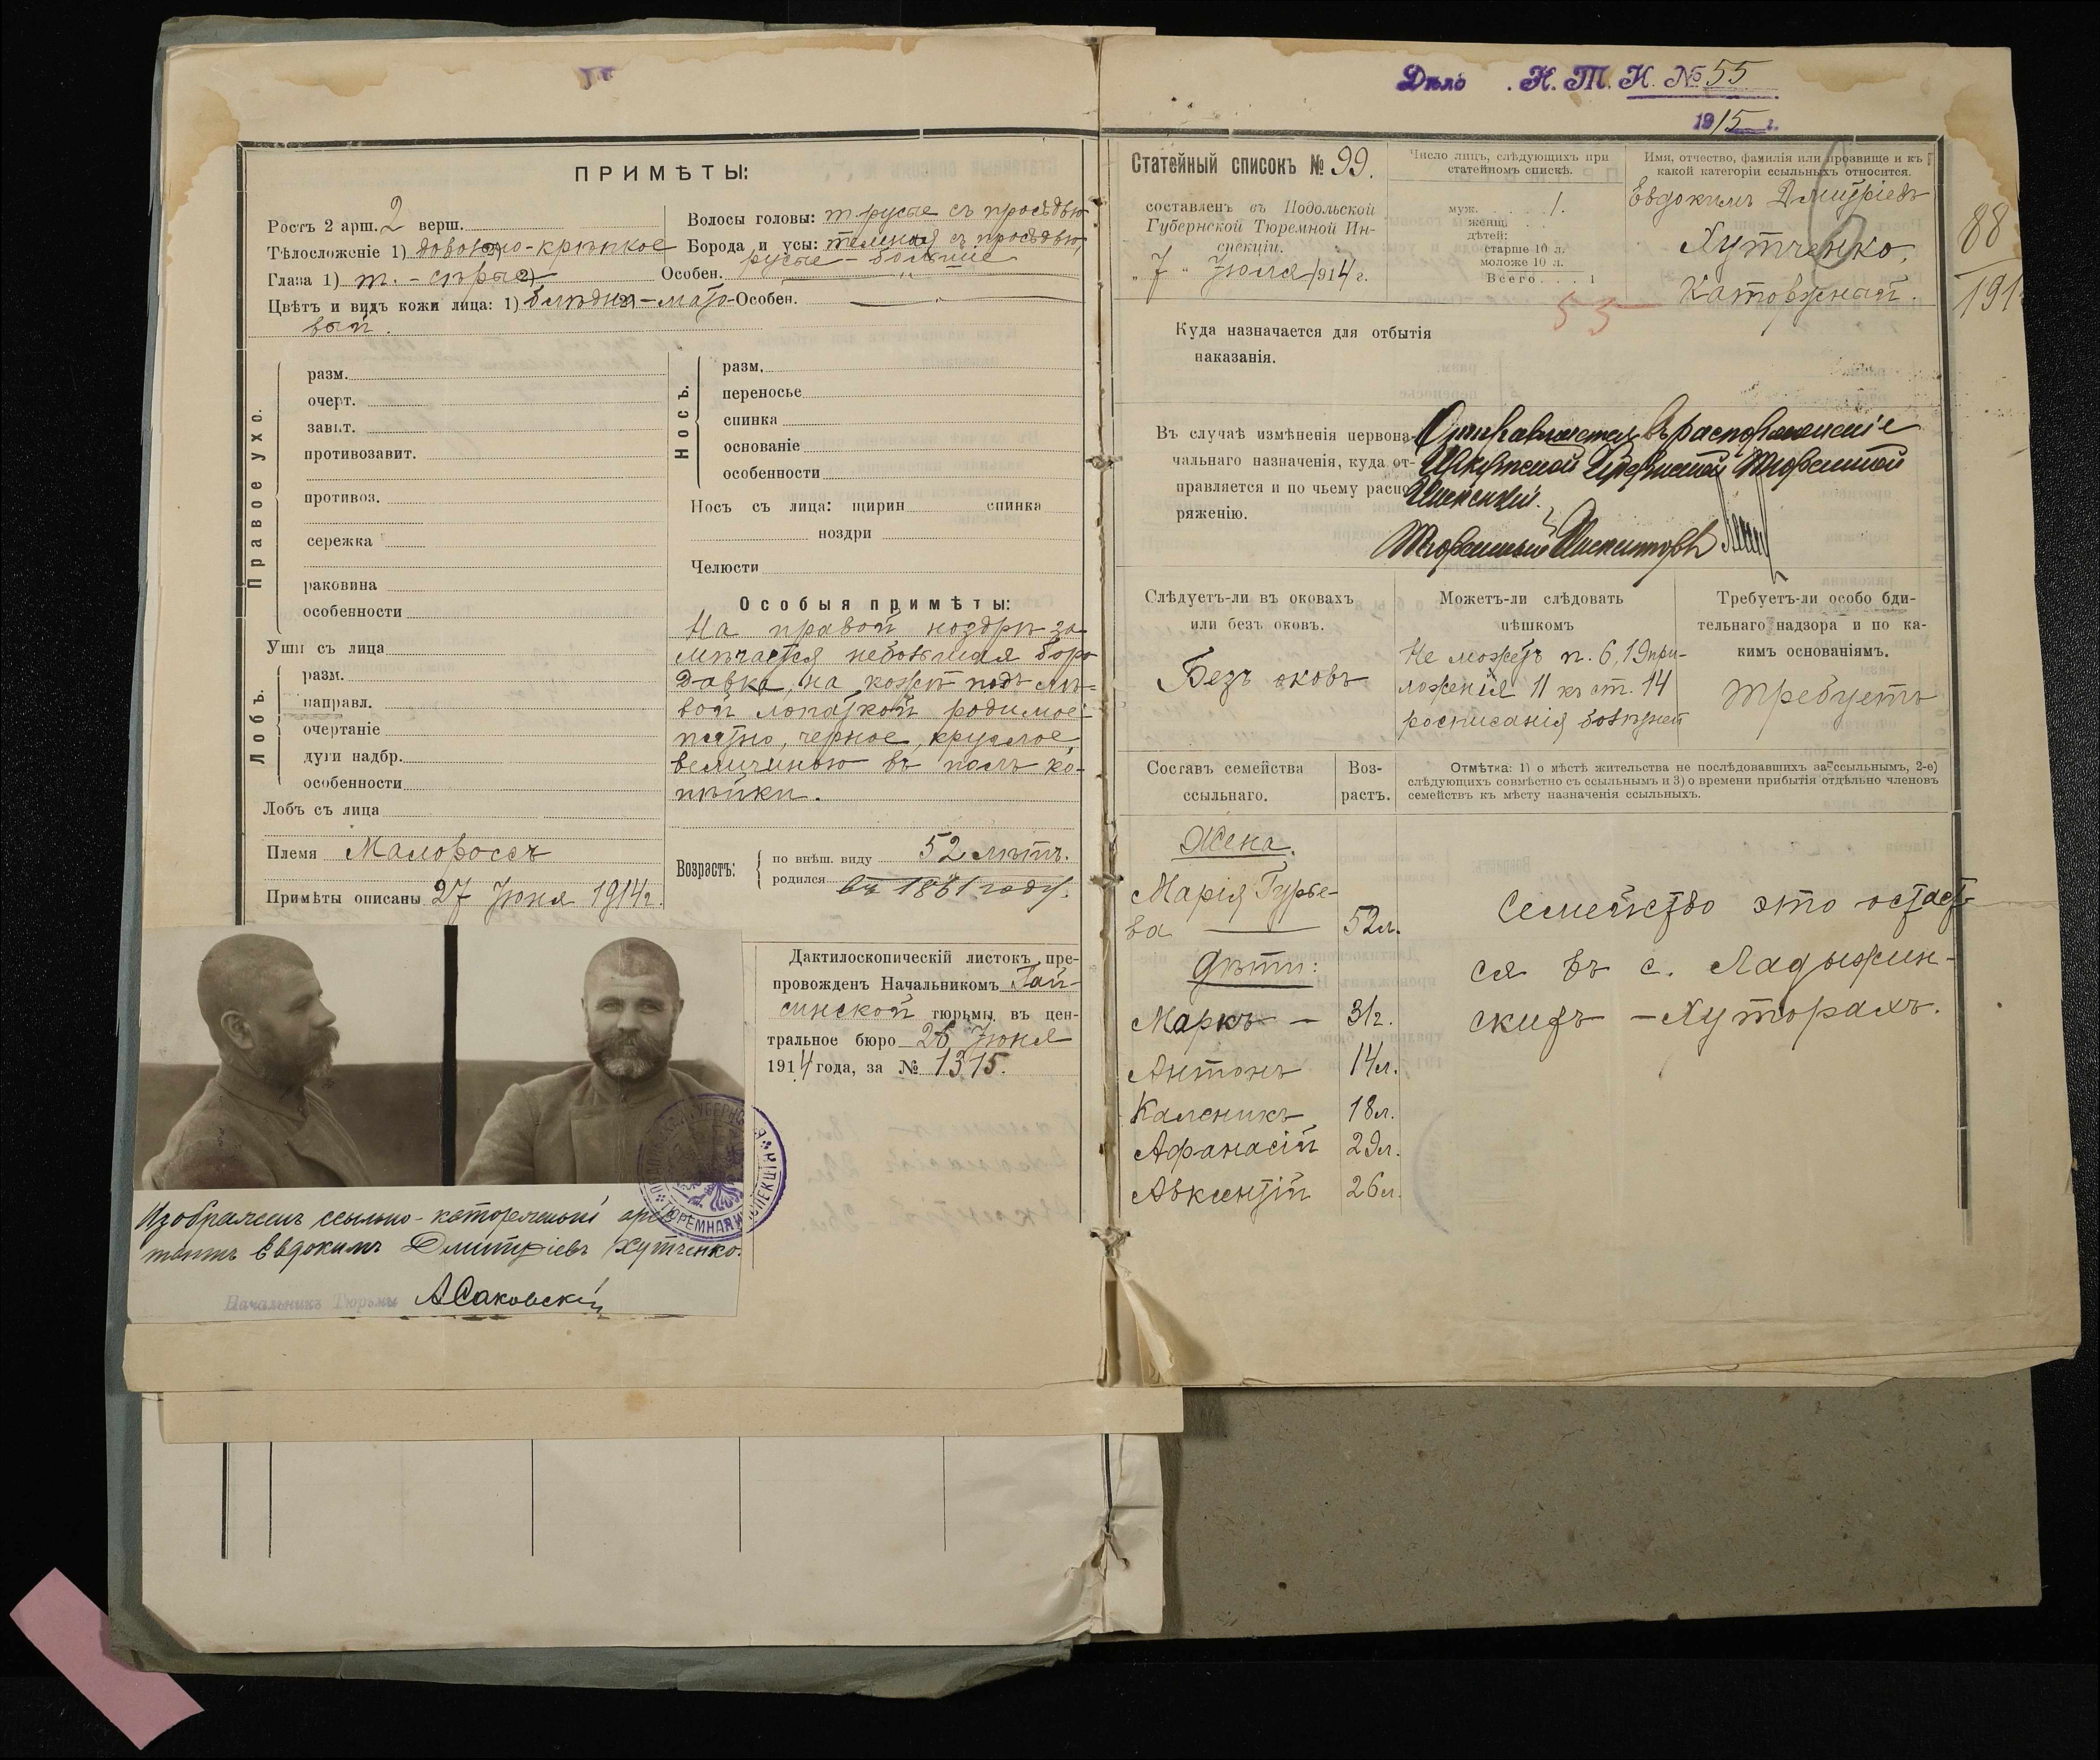 ПРИМѢТЫ:
Ростъ 2 арш. 2 верш.
Тѣлосложеніе 1) довольно-крѣпкое 2)
Глаза 1) т.-сѣрые 2)
Особен.
Цвѣтъ и видъ кожи лица: 1) блѣдно-мато-
Особен.
вый.
Волосы головы: т.русые съ просѣдью
Борода и усы: съ просѣдью,
русые - большіе
Правое ухо.
разм.
очерт.
завит.
противозавит.
противоз.
сережка
раковина
особенности
Уши съ лица
Лобъ.
разм.
направл.
очертаніе
дуги надбр.
особенности
Лобъ съ лица
Племя Малороссъ
Примѣты описаны 27 Іюня 1914 г.
Носъ.
разм.
переносье
спинка
основаніе
особенности
Носъ съ лица: ширин спинка
ноздри
Челюсти
Особыя примѣты:
На правой ноздрѣ за-
мѣчается небольшая боро
давка, на кожѣ подъ лѣ-
вой лопаткой родимое
пятно, черное, круглое,
величиною въ полъ ко-
пѣйки.
Возрастъ:
по внѣш. виду 52 лѣтъ.
родился въ 1861 году.
Дактилоскопическій листокъ пре-
провожденъ Начальникомъ Гай-
синской тюрьмы въ цен-
тральное бюро 28 Іюня
1914 года, за № 1315.
Изображенъ ссыльно-каторжный арес
тантъ Евдокимъ Дмитріевъ Хутченко.
Начальникъ Тюрьмы АСаковскій
ТЮРЕМНАЯ ИНСПЕКЦІЯ
Дѣло . Н. Т. И. № 55
1915 г.
Статейный списокъ № 99.
составленъ въ Подольской
Губернской Тюремной Ин-
спекціи.
„ 7 " Іюля 1914 г.
Число лицъ, слѣдующихъ при
статейномъ спискѣ.
муж. . . . 1.
женщ. . .
дѣтей:
старше 10 л.
моложе 10 л.
Всего . . . 1
53
Имя, отчество, фамилія или прозвище и къ
какой категоріи ссыльныхъ относится.
Евдокимъ Дмитріевъ
Хутченко,
Каторжный.
88
191
Куда назначается для отбытія
наказанія.
Въ случаѣ измѣненія первона-
чальнаго назначенія, куда от-
правляется и по чьему распо-
ряженію.
Отправляется въ распоряженіе
Иркутской Губернской Тюремной
Инспекціи.
Тюремный Инспекторъ
Слѣдуетъ-ли въ оковахъ
или безъ оковъ.
Безъ оковъ
Можетъ-ли слѣдовать
пѣшкомъ
Не можетъ п. 6, 19 при-
ложенія 11 къ ст. 14
росписанія болѣзней
Требуетъ-ли особо бди-
тельнаго надзора и по ка-
кимъ основаніямъ.
Требуетъ
Составъ семейства
ссыльнаго.
Воз-
растъ.
Отмѣтка: 1) о мѣстѣ жительства не послѣдовавшихъ за ссыльнымъ, 2-е)
слѣдующихъ совмѣстно съ ссыльнымъ и 3) о времени прибытія отдѣльно членовъ
семействъ къ мѣсту назначенія ссыльныхъ.
Жена.
Марія Гурье-
ва 52 л.
Дѣти:
Маркъ - 31 г.
Антонъ 14 л.
Каленикъ 18 л.
Афанасій 29 л.
Авксентій 26 л.
Семейство это остает-
ся въ с. Ладыжин-
скихъ - Хуторахъ.